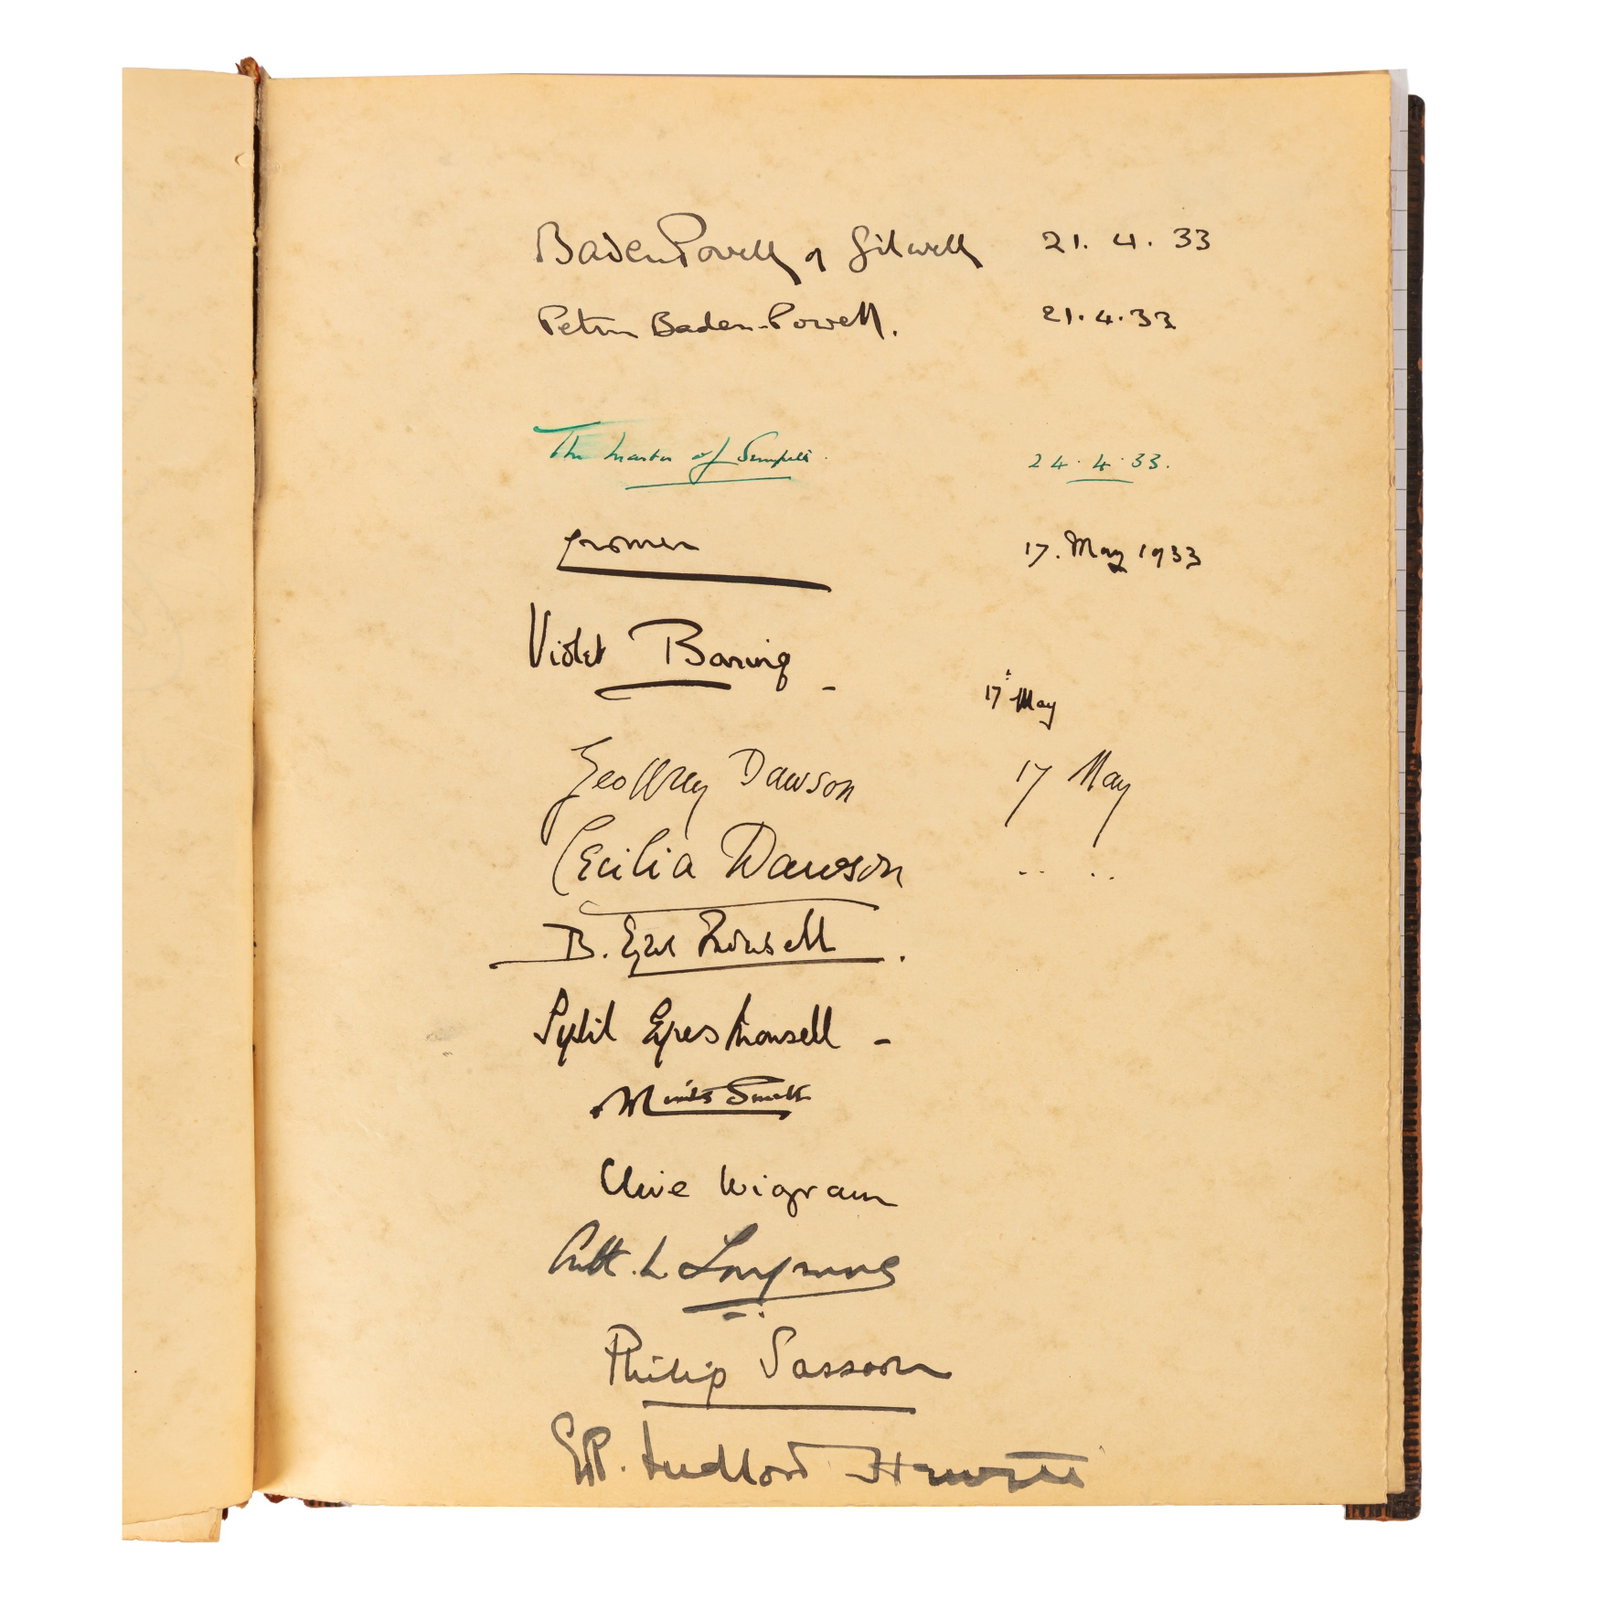 Baden Powell of Gilwell 21. 4. 33
Peter Baden-Powell. 21.4.33
The Master of Sempill. 24.4.33.
Cromer 17. May 1933
Violet Baring - 17 May
Geoffrey Dawson 17 May
Cecilia Dawson .. ..
B. Eyres Monsell.
Sybil Eyres Monsell -
Smith
Clive Wigram
L
Philip Sassoon
Ludlow Hewitt